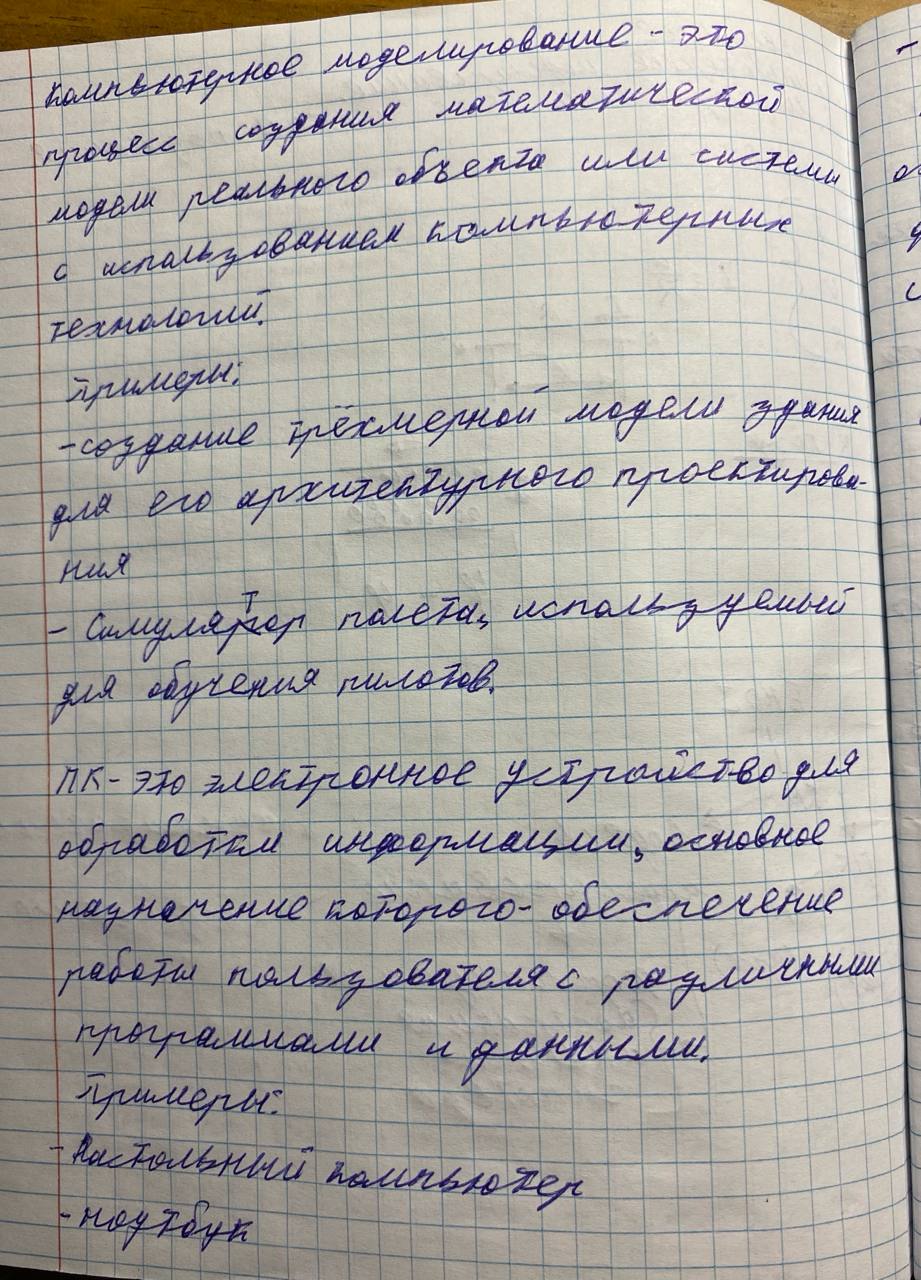 Компьютерное моделирование - это
процесс создания математической
модели реального объекта или системы
с использованием компьютерных
технологий.
Примеры:
-создание трёхмерной модели здания
для его архитектурного проектирова-
ния
- Симулятор полета, используемый
для обучения пилотов.
ПК- это электронное устройство для
обработки информации, основное
назначение которого- обеспечение
работы пользователя с различными
программами и данными.
Примеры:
- Настольный компьютер
-ноутбук